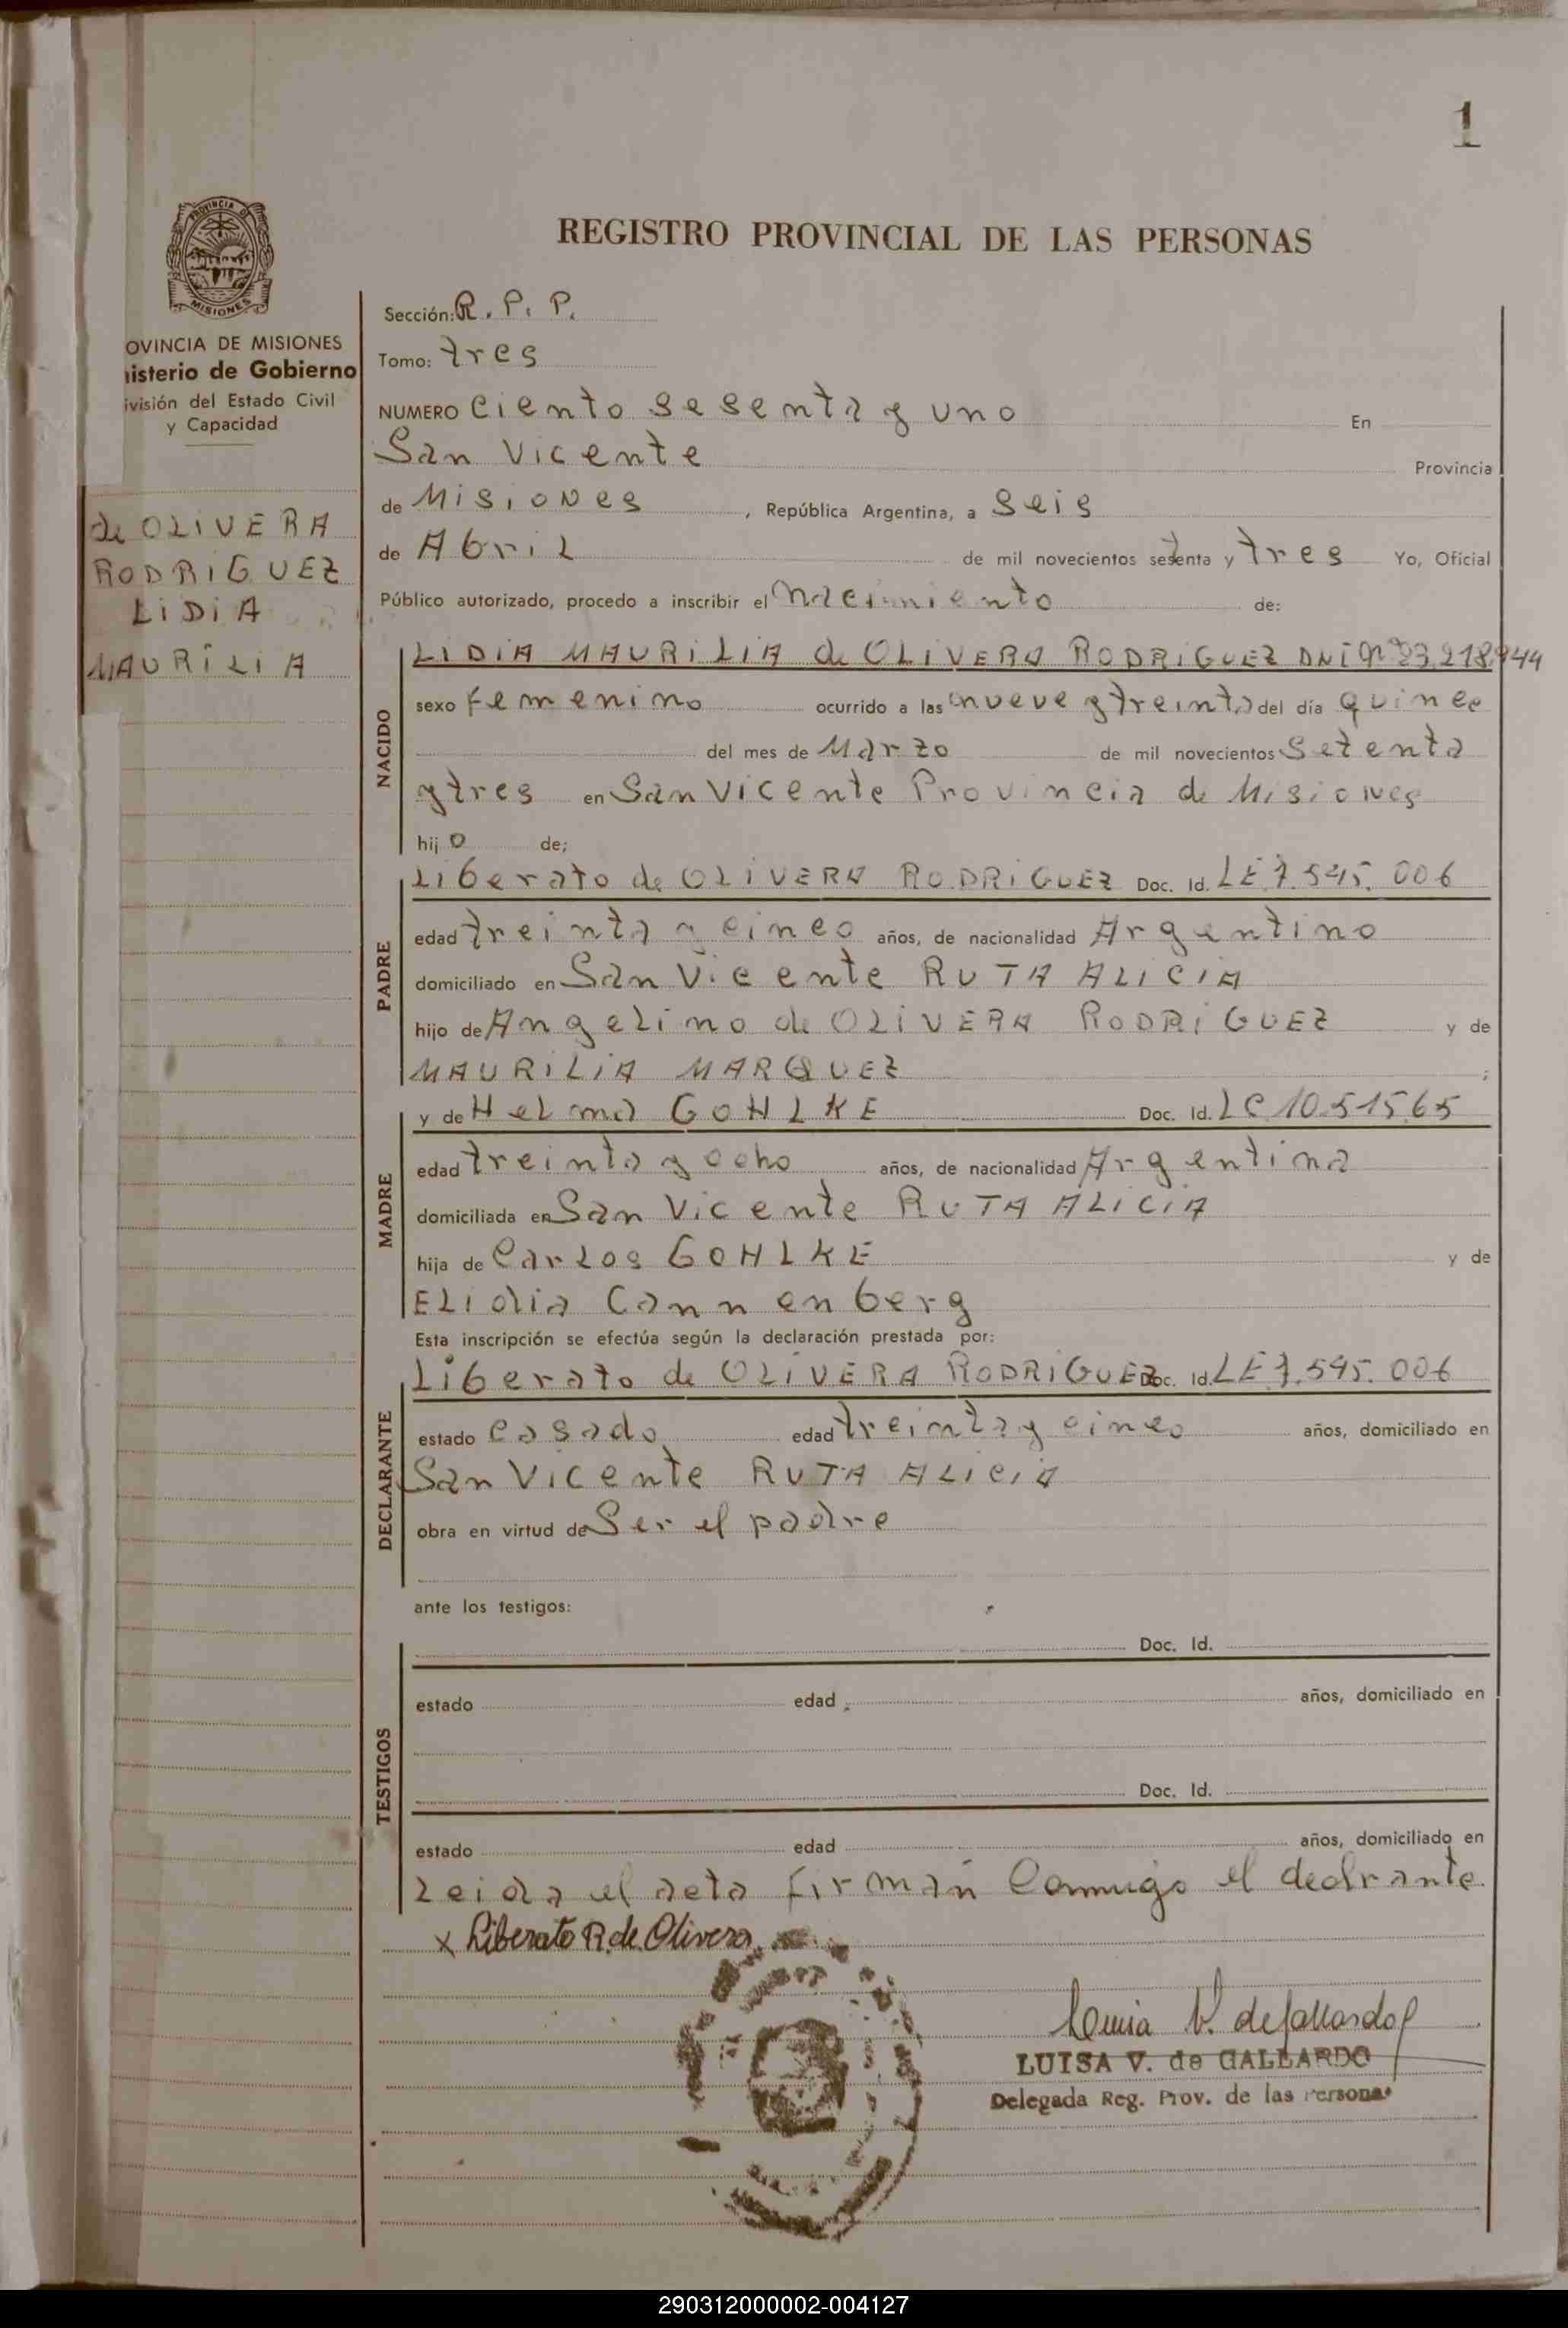 1
REGISTRO PROVINCIAL DE LAS PERSONAS
PROVINCIA DE
MISIONES
OVINCIA DE MISIONES
nisterio de Gobierno
ivisión del Estado Civil
y Capacidad
de OLIVERA
RODRIGUEZ
LIDIA
MAURILIA
Sección: R. P. P.
Tomo: tres
NUMERO Ciento sesenta y uno En
San Vicente Provincia
de Misiones, República Argentina, a Seis
de Abril de mil novecientos setenta y tres Yo, Oficial
Público autorizado, procedo a inscribir el Nacimiento de:
NACIDO
LIDIA MAURILIA de OLIVERA RODRIGUEZ DNI Nº 23.218.944
sexo Femenino ocurrido a las nueve y treinta del día quince
del mes de Marzo de mil novecientos Setenta
y tres en San Vicente Provincia de Misiones
hijo de:
PADRE
Liberato de OLIVERA RODRIGUEZ Doc. Id. LE 7.545.006
edad treinta y cinco años, de nacionalidad Argentino
domiciliado en San Vicente RUTA ALICIA
hijo de Angelino de OLIVERA RODRIGUEZ y de
MAURILIA MARQUEZ;
MADRE
y de Helma GOHLKE Doc. Id. LC 10.515.65
edad treinta y ocho años, de nacionalidad Argentina
domiciliada en San Vicente RUTA ALICIA
hija de Carlos GOHLKE y de
Elidia Cannenberg
Esta inscripción se efectúa según la declaración prestada por:
DECLARANTE
Liberato de OLIVERA RODRIGUEZ Doc. Id. LE 7.545.006
estado Casado edad treinta y cinco años, domiciliado en
San Vicente RUTA ALICIA
obra en virtud de Ser el padre
ante los testigos:
TESTIGOS
Doc. Id.
estado edad años, domiciliado en
Doc. Id.
estado edad años, domiciliado en
Leida el acta firman Conmigo el declrante
x Liberato R. de Olivera
Luisa V. de Gallardo
LUISA V. de GALLARDO
Delegada Reg. Prov. de las Personas
290312000002-004127